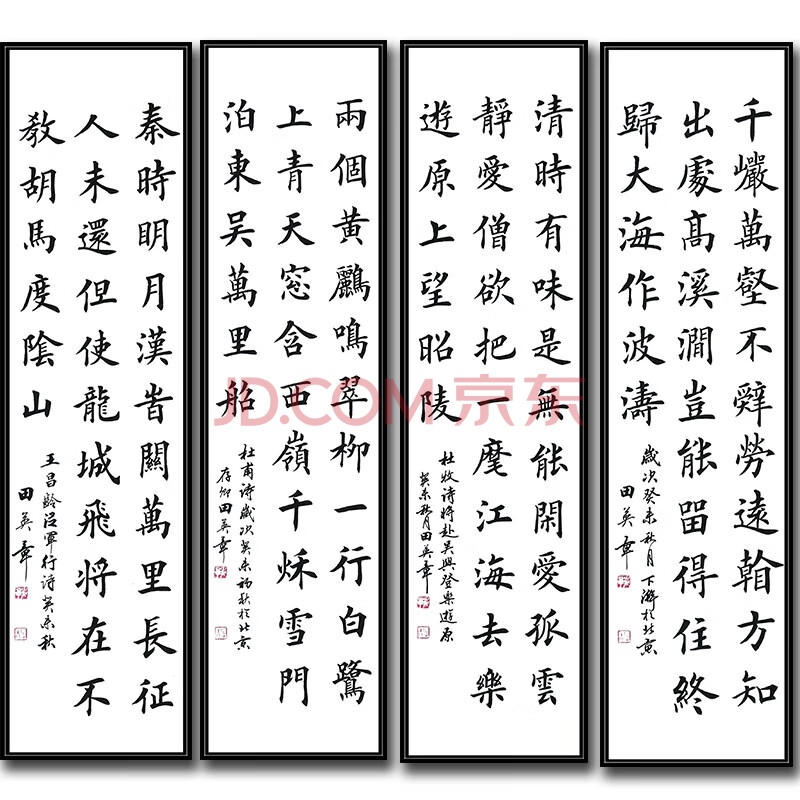 千巖萬壑不辭勞遠翰方知
出處髙溪澗豈能畱得住終
歸大海作波濤
歲次癸未秋月下澣於北京
田英章
清時有味是無能閑愛孤雲
靜愛僧欲把一麾江海去樂
遊原上望昭陵
杜牧詩將赴吳興登樂遊原
癸未秋月田英章
兩個黃鸝鳴翠柳一行白鷺
上青天窓含西嶺千秌雪門
泊東吳萬里船
杜甫詩歲次癸未初秋於北京
田英章
秦時明月漢旹關萬里長征
人未還但使龍城飛將在不
教胡馬度陰山
王昌齡從軍行詩癸未秋
田英章
JD.COM 京东